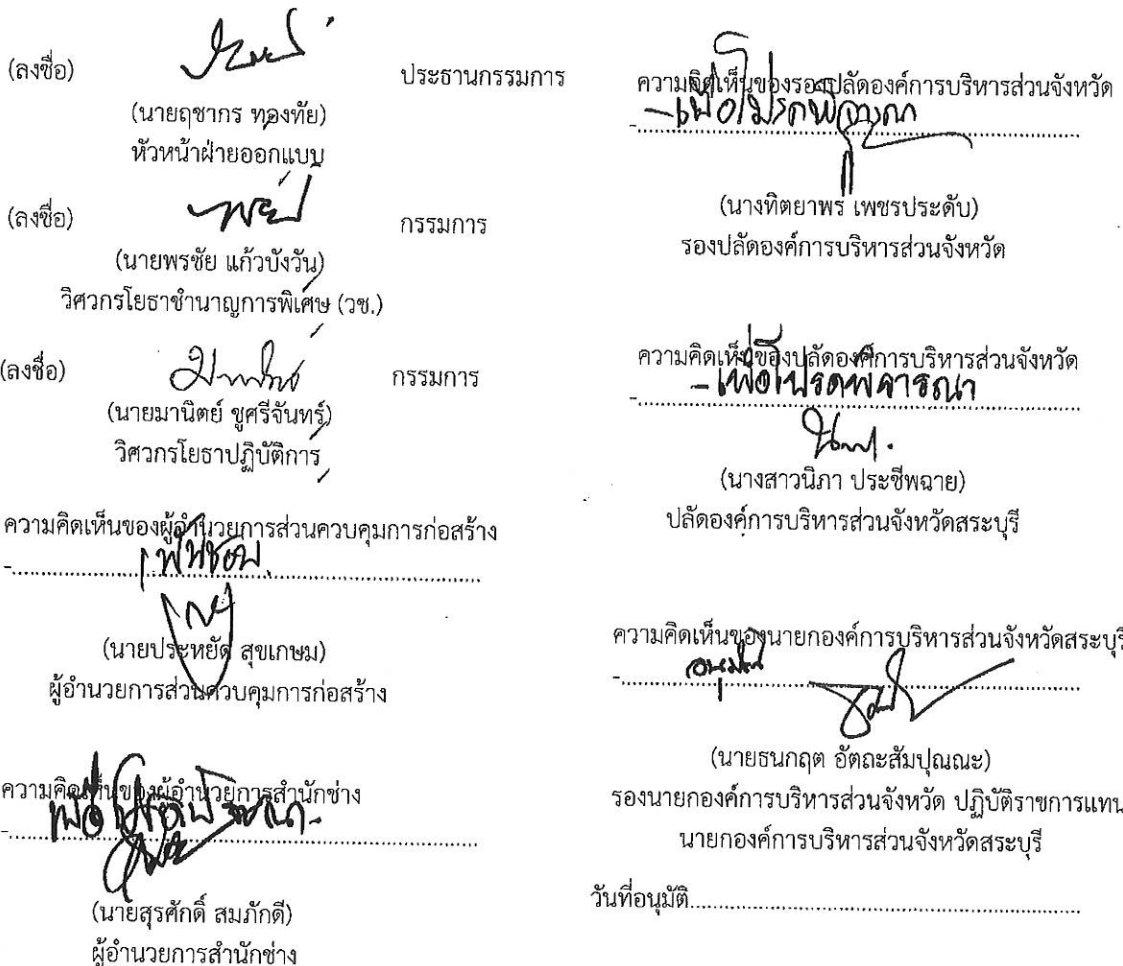 (ลงชื่อ) ประธานกรรมการ
(นายฤชากร ทองทัย)
หัวหน้าฝ่ายออกแบบ
(ลงชื่อ) กรรมการ
(นายพรชัย แก้วบังวัน)
วิศวกรโยธาชำนาญการพิเศษ (วช.)
(ลงชื่อ) กรรมการ
(นายมานิตย์ ชูศรีจันทร์)
วิศวกรโยธาปฏิบัติการ
ความคิดเห็นของผู้อำนวยการส่วนควบคุมการก่อสร้าง
- เห็นชอบ
(นายประหยัด สุขเกษม)
ผู้อำนวยการส่วนควบคุมการก่อสร้าง
ความคิดเห็นของผู้อำนวยการสำนักช่าง
- เพื่อโปรดพิจารณา
(นายสุรศักดิ์ สมภักดี)
ผู้อำนวยการสำนักช่าง
ความคิดเห็นของรองปลัดองค์การบริหารส่วนจังหวัด
- เพื่อโปรดพิจารณา
(นางทิตยาพร เพชรประดับ)
รองปลัดองค์การบริหารส่วนจังหวัด
ความคิดเห็นของปลัดองค์การบริหารส่วนจังหวัด
- เพื่อโปรดพิจารณา
(นางสาวนิภา ประชีพฉาย)
ปลัดองค์การบริหารส่วนจังหวัดสระบุรี
ความคิดเห็นของนายกองค์การบริหารส่วนจังหวัดสระบุรี
- อนุมัติ
(นายธนกฤต อัตถะสัมปุณณะ)
รองนายกองค์การบริหารส่วนจังหวัด ปฏิบัติราชการแทน
นายกองค์การบริหารส่วนจังหวัดสระบุรี
วันที่อนุมัติ